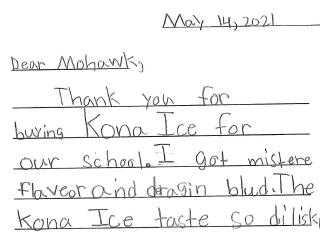 May 14, 2021
Dear Mohawk,
Thank you for
buying Kona Ice for
our school. I got mistere
flaveor and deragin blud. The
Kona Ice taste so dilisk